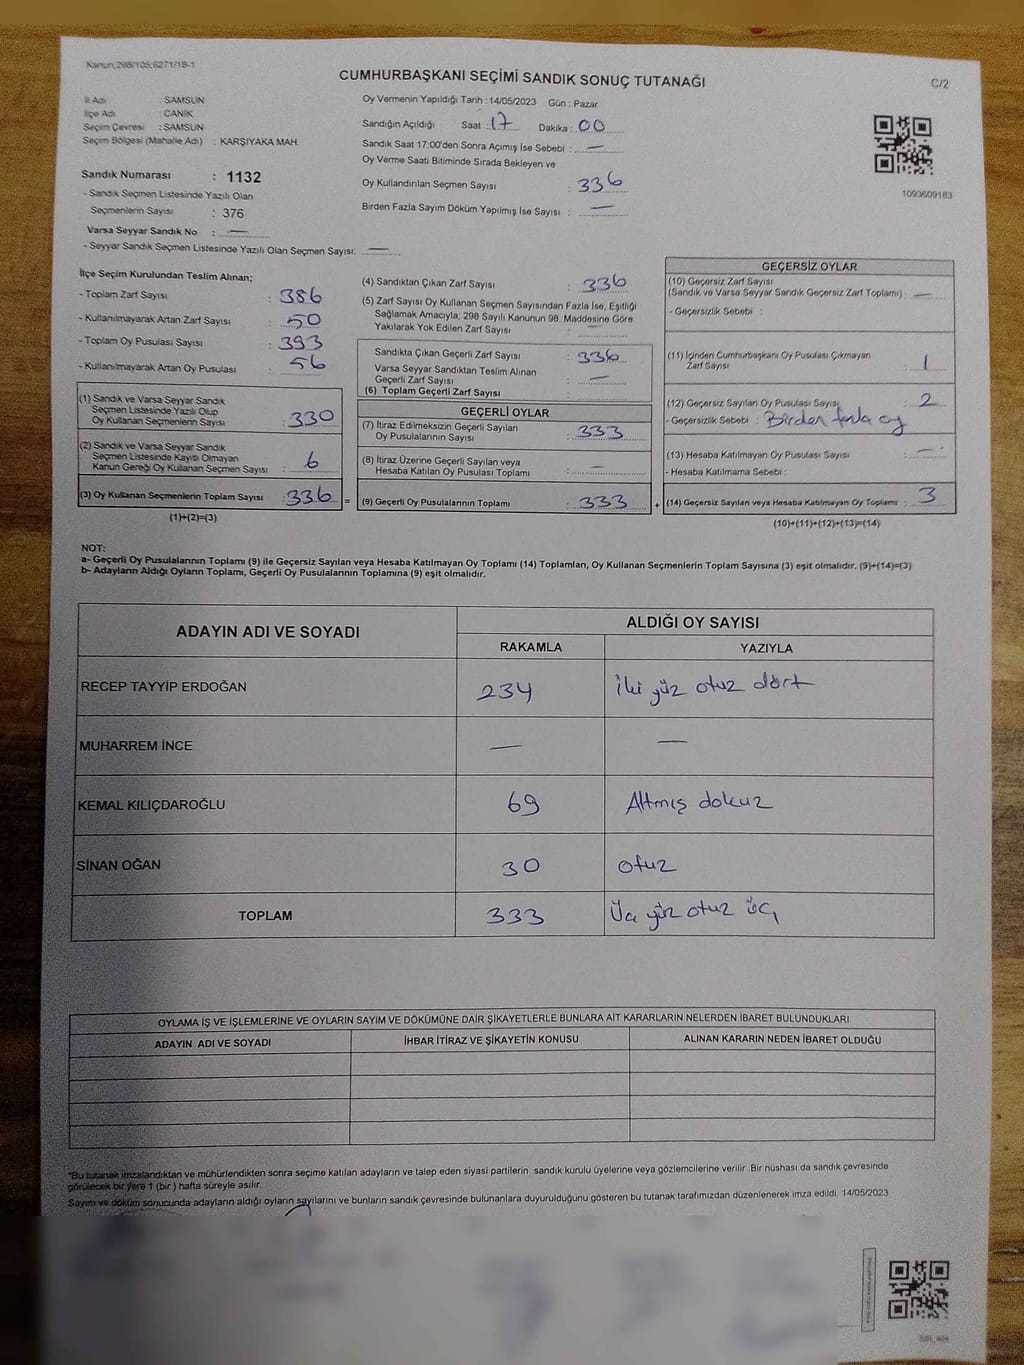 Kanun;298/105;6271/18-1
CUMHURBAŞKANI SEÇİMİ SANDIK SONUÇ TUTANAĞI
C/2
İl Adı : SAMSUN
İlçe Adı : CANİK
Seçim Çevresi : SAMSUN
Seçim Bölgesi (Mahalle Adı) : KARŞIYAKA MAH.
Sandık Numarası : 1132
- Sandık Seçmen Listesinde Yazılı Olan
Seçmenlerin Sayısı : 376
Varsa Seyyar Sandık No : —
- Seyyar Sandık Seçmen Listesinde Yazılı Olan Seçmen Sayısı: —
Oy Vermenin Yapıldığı Tarih : 14/05/2023 Gün : Pazar
Sandığın Açıldığı Saat : 17 Dakika : 00
Sandık Saat 17:00'den Sonra Açımış İse Sebebi : —
Oy Verme Saati Bitiminde Sırada Bekleyen ve
Oy Kullandırılan Seçmen Sayısı : 336
Birden Fazla Sayım Döküm Yapılmış İse Sayısı : —
1093609163
İlçe Seçim Kurulundan Teslim Alınan;
- Toplam Zarf Sayısı : 386
- Kullanılmayarak Artan Zarf Sayısı : 50
- Toplam Oy Pusulası Sayısı : 393
- Kullanılmayarak Artan Oy Pusulası : 56
(1) Sandık ve Varsa Seyyar Sandık
Seçmen Listesinde Yazılı Olup
Oy Kullanan Seçmenlerin Sayısı : 330
(2) Sandık ve Varsa Seyyar Sandık
Seçmen Listesinde Kayıtlı Olmayan
Kanun Gereği Oy Kullanan Seçmen Sayısı : 6
(3) Oy Kullanan Seçmenlerin Toplam Sayısı : 336 =
(1)+(2)=(3)
(4) Sandıktan Çıkan Zarf Sayısı : 336
(5) Zarf Sayısı Oy Kullanan Seçmen Sayısından Fazla İse, Eşitliği
Sağlamak Amacıyla; 298 Sayılı Kanunun 98. Maddesine Göre
Yakılarak Yok Edilen Zarf Sayısı : —
Sandıkta Çıkan Geçerli Zarf Sayısı : 336
Varsa Seyyar Sandıktan Teslim Alınan
Geçerli Zarf Sayısı : —
(6) Toplam Geçerli Zarf Sayısı :
GEÇERLİ OYLAR
(7) İtiraz Edilmeksizin Geçerli Sayılan
Oy Pusulalarının Sayısı : 333
(8) İtiraz Üzerine Geçerli Sayılan veya
Hesaba Katılan Oy Pusulası Toplamı : —
(9) Geçerli Oy Pusulalarının Toplamı : 333 +
GEÇERSİZ OYLAR
(10) Geçersiz Zarf Sayısı
(Sandık ve Varsa Seyyar Sandık Geçersiz Zarf Toplamı) : —
- Geçersizlik Sebebi :
(11) İçinden Cumhurbaşkanı Oy Pusulası Çıkmayan
Zarf Sayısı : 1
(12) Geçersiz Sayılan Oy Pusulası Sayısı : 2
- Geçersizlik Sebebi : Birden fazla oy
(13) Hesaba Katılmayan Oy Pusulası Sayısı : —
- Hesaba Katılmama Sebebi :
(14) Geçersiz Sayılan veya Hesaba Katılmayan Oy Toplamı : 3
(10)+(11)+(12)+(13)=(14)
NOT:
a- Geçerli Oy Pusulalarının Toplamı (9) ile Geçersiz Sayılan veya Hesaba Katılmayan Oy Toplamı (14) Toplamları, Oy Kullanan Seçmenlerin Toplam Sayısına (3) eşit olmalıdır. (9)+(14)=(3)
b- Adayların Aldığı Oyların Toplamı, Geçerli Oy Pusulalarının Toplamına (9) eşit olmalıdır.
ADAYIN ADI VE SOYADI
ALDIĞI OY SAYISI
RAKAMLA YAZIYLA
RECEP TAYYİP ERDOĞAN 234 İki yüz otuz dört
MUHARREM İNCE — —
KEMAL KILIÇDAROĞLU 69 Altmış dokuz
SİNAN OĞAN 30 otuz
TOPLAM 333 Üç yüz otuz üç
OYLAMA İŞ VE İŞLEMLERİNE VE OYLARIN SAYIM VE DÖKÜMÜNE DAİR ŞİKAYETLERLE BUNLARA AİT KARARLARIN NELERDEN İBARET BULUNDUKLARI
ADAYIN ADI VE SOYADI İHBAR İTİRAZ VE ŞİKAYETİN KONUSU ALINAN KARARIN NEDEN İBARET OLDUĞU
*Bu tutanak imzalandıktan ve mühürlendikten sonra seçime katılan adayların ve talep eden siyasi partilerin sandık kurulu üyelerine veya gözlemcilerine verilir. Bir nüshası da sandık çevresinde
görülecek bir yere 1 (bir ) hafta süreyle asılır.
Sayım ve döküm sonucunda adayların aldığı oyların sayılarını ve bunların sandık çevresinde bulunanlara duyurulduğunu gösteren bu tutanak tarafımızdan düzenlenerek imza edildi. 14/05/2023